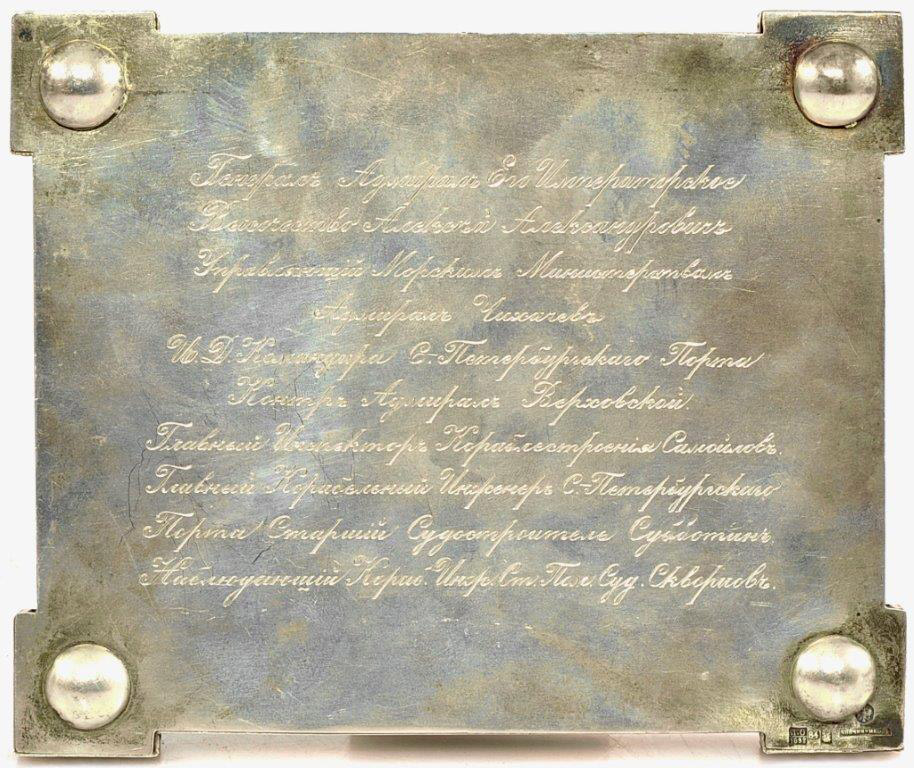 Генералъ Адмиралъ Его Императорское
Высочество Алексѣй Александровичъ
Управляющій Морскимъ Министерствомъ
Адмиралъ Чихачевъ
И. Д. Командира С.-Петербургскаго Порта
Контръ Адмиралъ Верховской.
Главный Инспекторъ Кораблестроенія Самойловъ.
Главный Корабельный Инженеръ С.-Петербургскаго
Порта Старшій Судостроитель Субботинъ.
Наблюдающій Кораб. Инж. Ст. Пом. Суд. Скворцовъ.
84